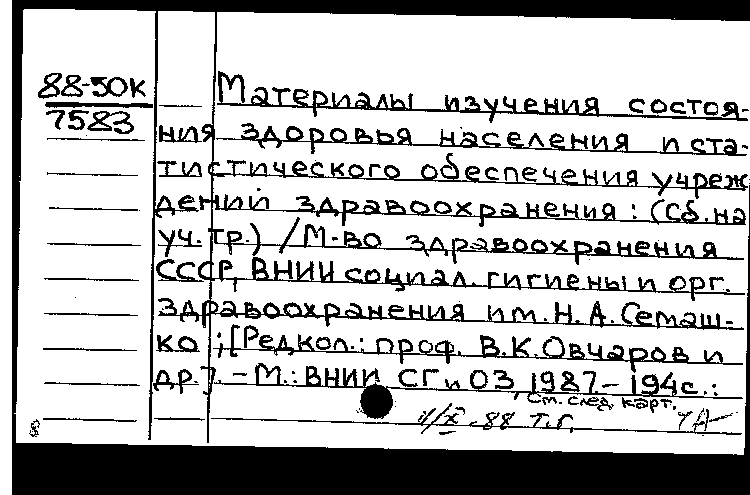 88-50к
7583
Материалы изучения состоя-
ния здоровья населения и ста-
тистического обеспечения учреж
дений здравоохранения : (Сб. на
уч. тр.) / М-во здравоохранения
СССР, ВНИИ социал. гигиены и орг.
здравоохранения им. Н. А. Семаш-
ко ; [Редкол.: проф. В. К. Овчаров и
др.]. - М.: ВНИИ СГ и ОЗ, 1987. - 194с. :
См. след. карт.
88 т.г.
8